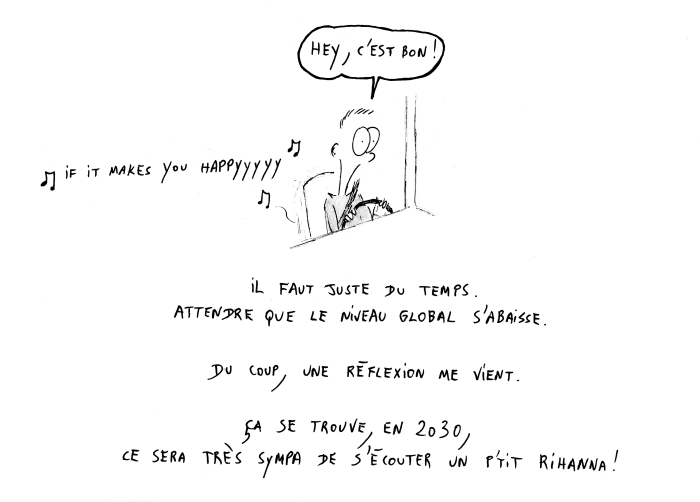 HEY, C'EST BON !
♫ iF iT MAKES YOU HAPPYYYYY ♫
♫
iL FAUT JUSTE DU TEMPS.
ATTENDRE QUE LE NiVEAU GLOBAL S'ABAiSSE.
DU COUP, UNE RÉFLEXiON ME ViENT.
ÇA SE TROUVE, EN 2030,
CE SERA TRÈS SYMPA DE S'ÉCOUTER UN P'TiT RiHANNA !